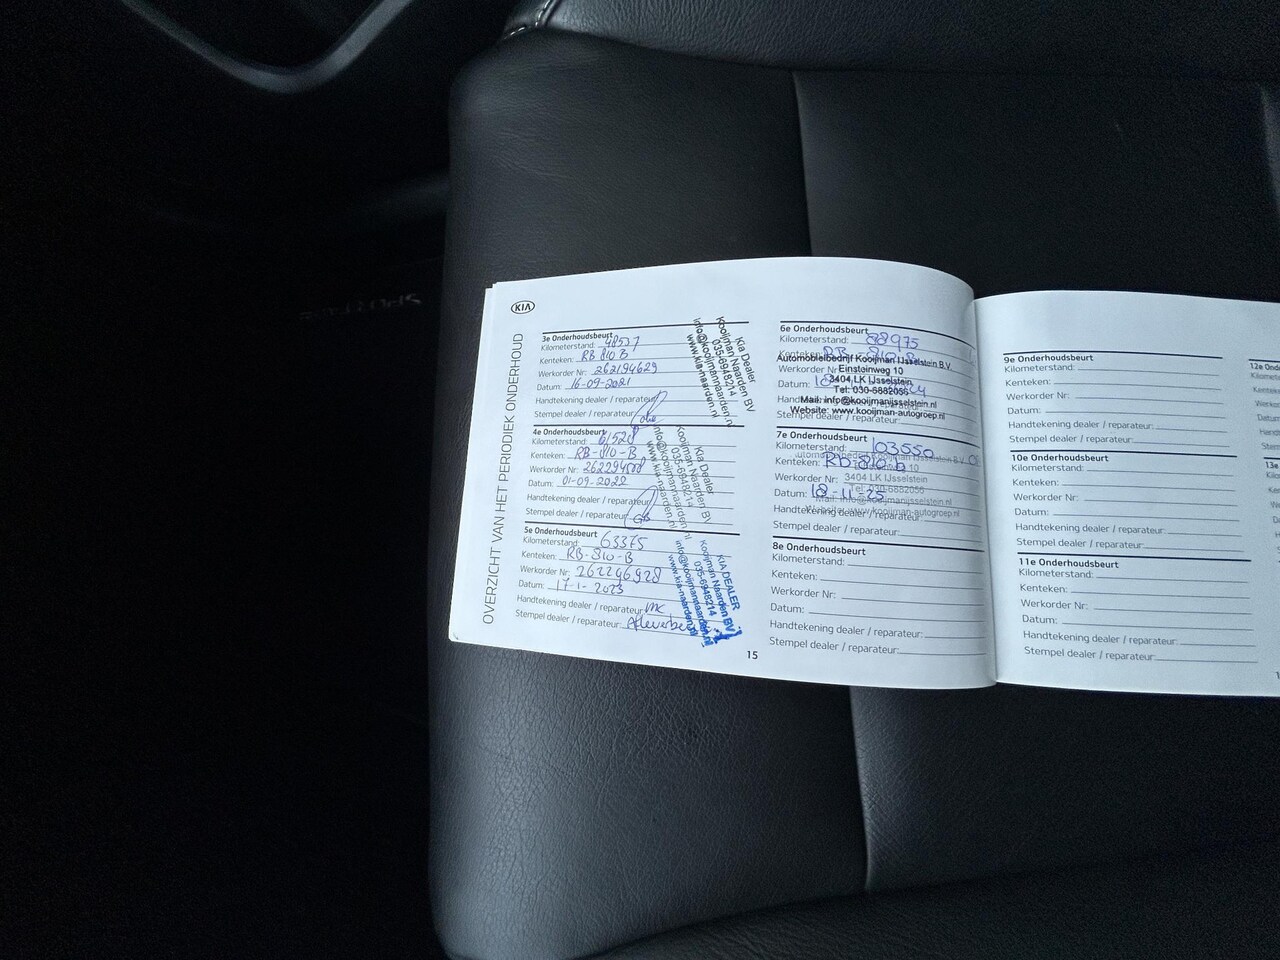 KIA
OVERZICHT VAN HET PERIODIEK ONDERHOUD
3e Onderhoudsbeurt
Kilometerstand: 48537
Kenteken: RB 810 B
Werkorder Nr: 262194629
Datum: 16-09-2021
Handtekening dealer / reparateur:
Stempel dealer / reparateur:
Kia Dealer
Kooijman Naarden BV
035-6948214
info@kooijmannaarden.nl
www.kia-naarden.nl
4e Onderhoudsbeurt
Kilometerstand:
Kenteken: RB-810-B
Werkorder Nr:
Datum: 01-09-2022
Handtekening dealer / reparateur:
Stempel dealer / reparateur:
Kia Dealer
Kooijman Naarden BV
035-6948214
info@kooijmannaarden.nl
www.kia-naarden.nl
5e Onderhoudsbeurt
Kilometerstand: 63375
Kenteken: RB-810-B
Werkorder Nr: 262246928
Datum: 17-1-2023
Handtekening dealer / reparateur: MC
Stempel dealer / reparateur: Afleverbeurt
KIA DEALER
Kooijman Naarden BV
035-6948214
info@kooijmannaarden.nl
www.kia-naarden.nl
15
6e Onderhoudsbeurt
Kilometerstand: 88975
Kenteken:
Werkorder Nr:
Datum:
Handtekening dealer / reparateur:
Stempel dealer / reparateur:
Automobielbedrijf Kooijman IJsselstein B.V.
Einsteinweg 10
3404 LK IJsselstein
Tel: 030-6882055
Mail: info@kooijmanijsselstein.nl
Website: www.kooijman-autogroep.nl
7e Onderhoudsbeurt
Kilometerstand: 103550
Kenteken: RB-810-b
Werkorder Nr:
Datum: 18-11-25
Handtekening dealer / reparateur:
Stempel dealer / reparateur:
Automobielbedrijf Kooijman IJsselstein B.V.
Einsteinweg 10
3404 LK IJsselstein
Tel: 030-6882055
Mail: info@kooijmanijsselstein.nl
Website: www.kooijman-autogroep.nl
8e Onderhoudsbeurt
Kilometerstand:
Kenteken:
Werkorder Nr:
Datum:
Handtekening dealer / reparateur:
Stempel dealer / reparateur:
9e Onderhoudsbeurt
Kilometerstand:
Kenteken:
Werkorder Nr:
Datum:
Handtekening dealer / reparateur:
Stempel dealer / reparateur:
10e Onderhoudsbeurt
Kilometerstand:
Kenteken:
Werkorder Nr:
Datum:
Handtekening dealer / reparateur:
Stempel dealer / reparateur:
11e Onderhoudsbeurt
Kilometerstand:
Kenteken:
Werkorder Nr:
Datum:
Handtekening dealer / reparateur:
Stempel dealer / reparateur:
12e
13e